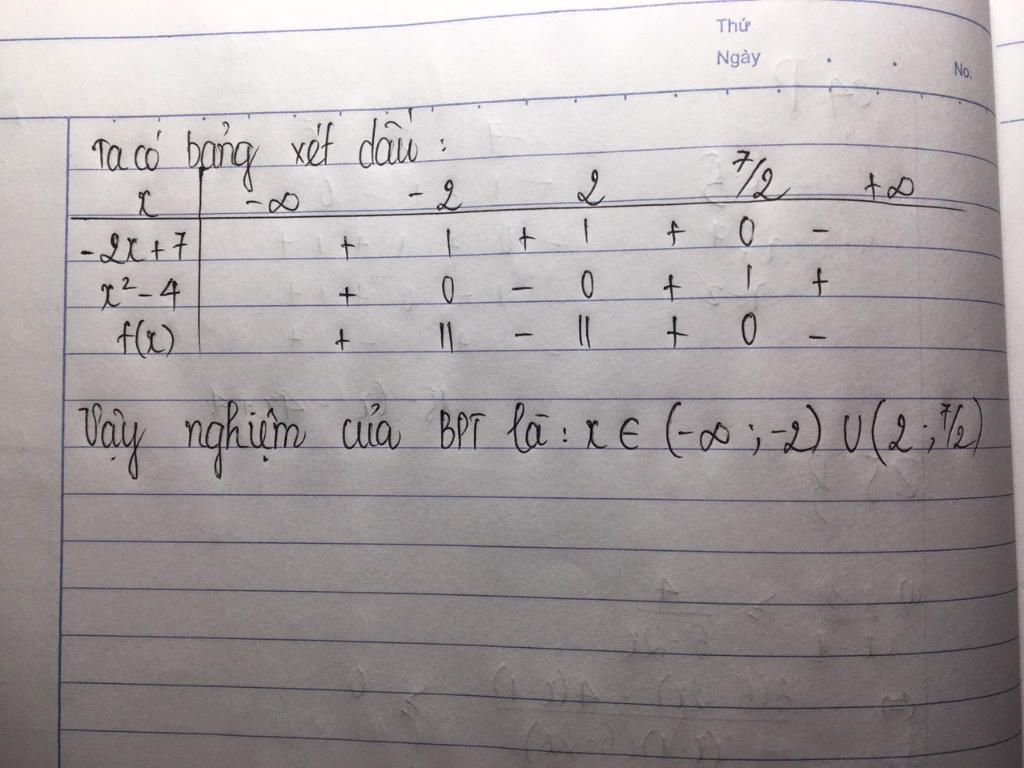 Thứ
Ngày
No.
Ta có bảng xét dấu :
x -∞ -2 2 7/2 +∞
-2x+7 + | + | + 0 -
x²-4 + 0 - 0 + | +
f(x) + || - || + 0 -
Vậy nghiệm của BPT là : x ∈ (-∞ ; -2) ∪ (2 ; 7/2)